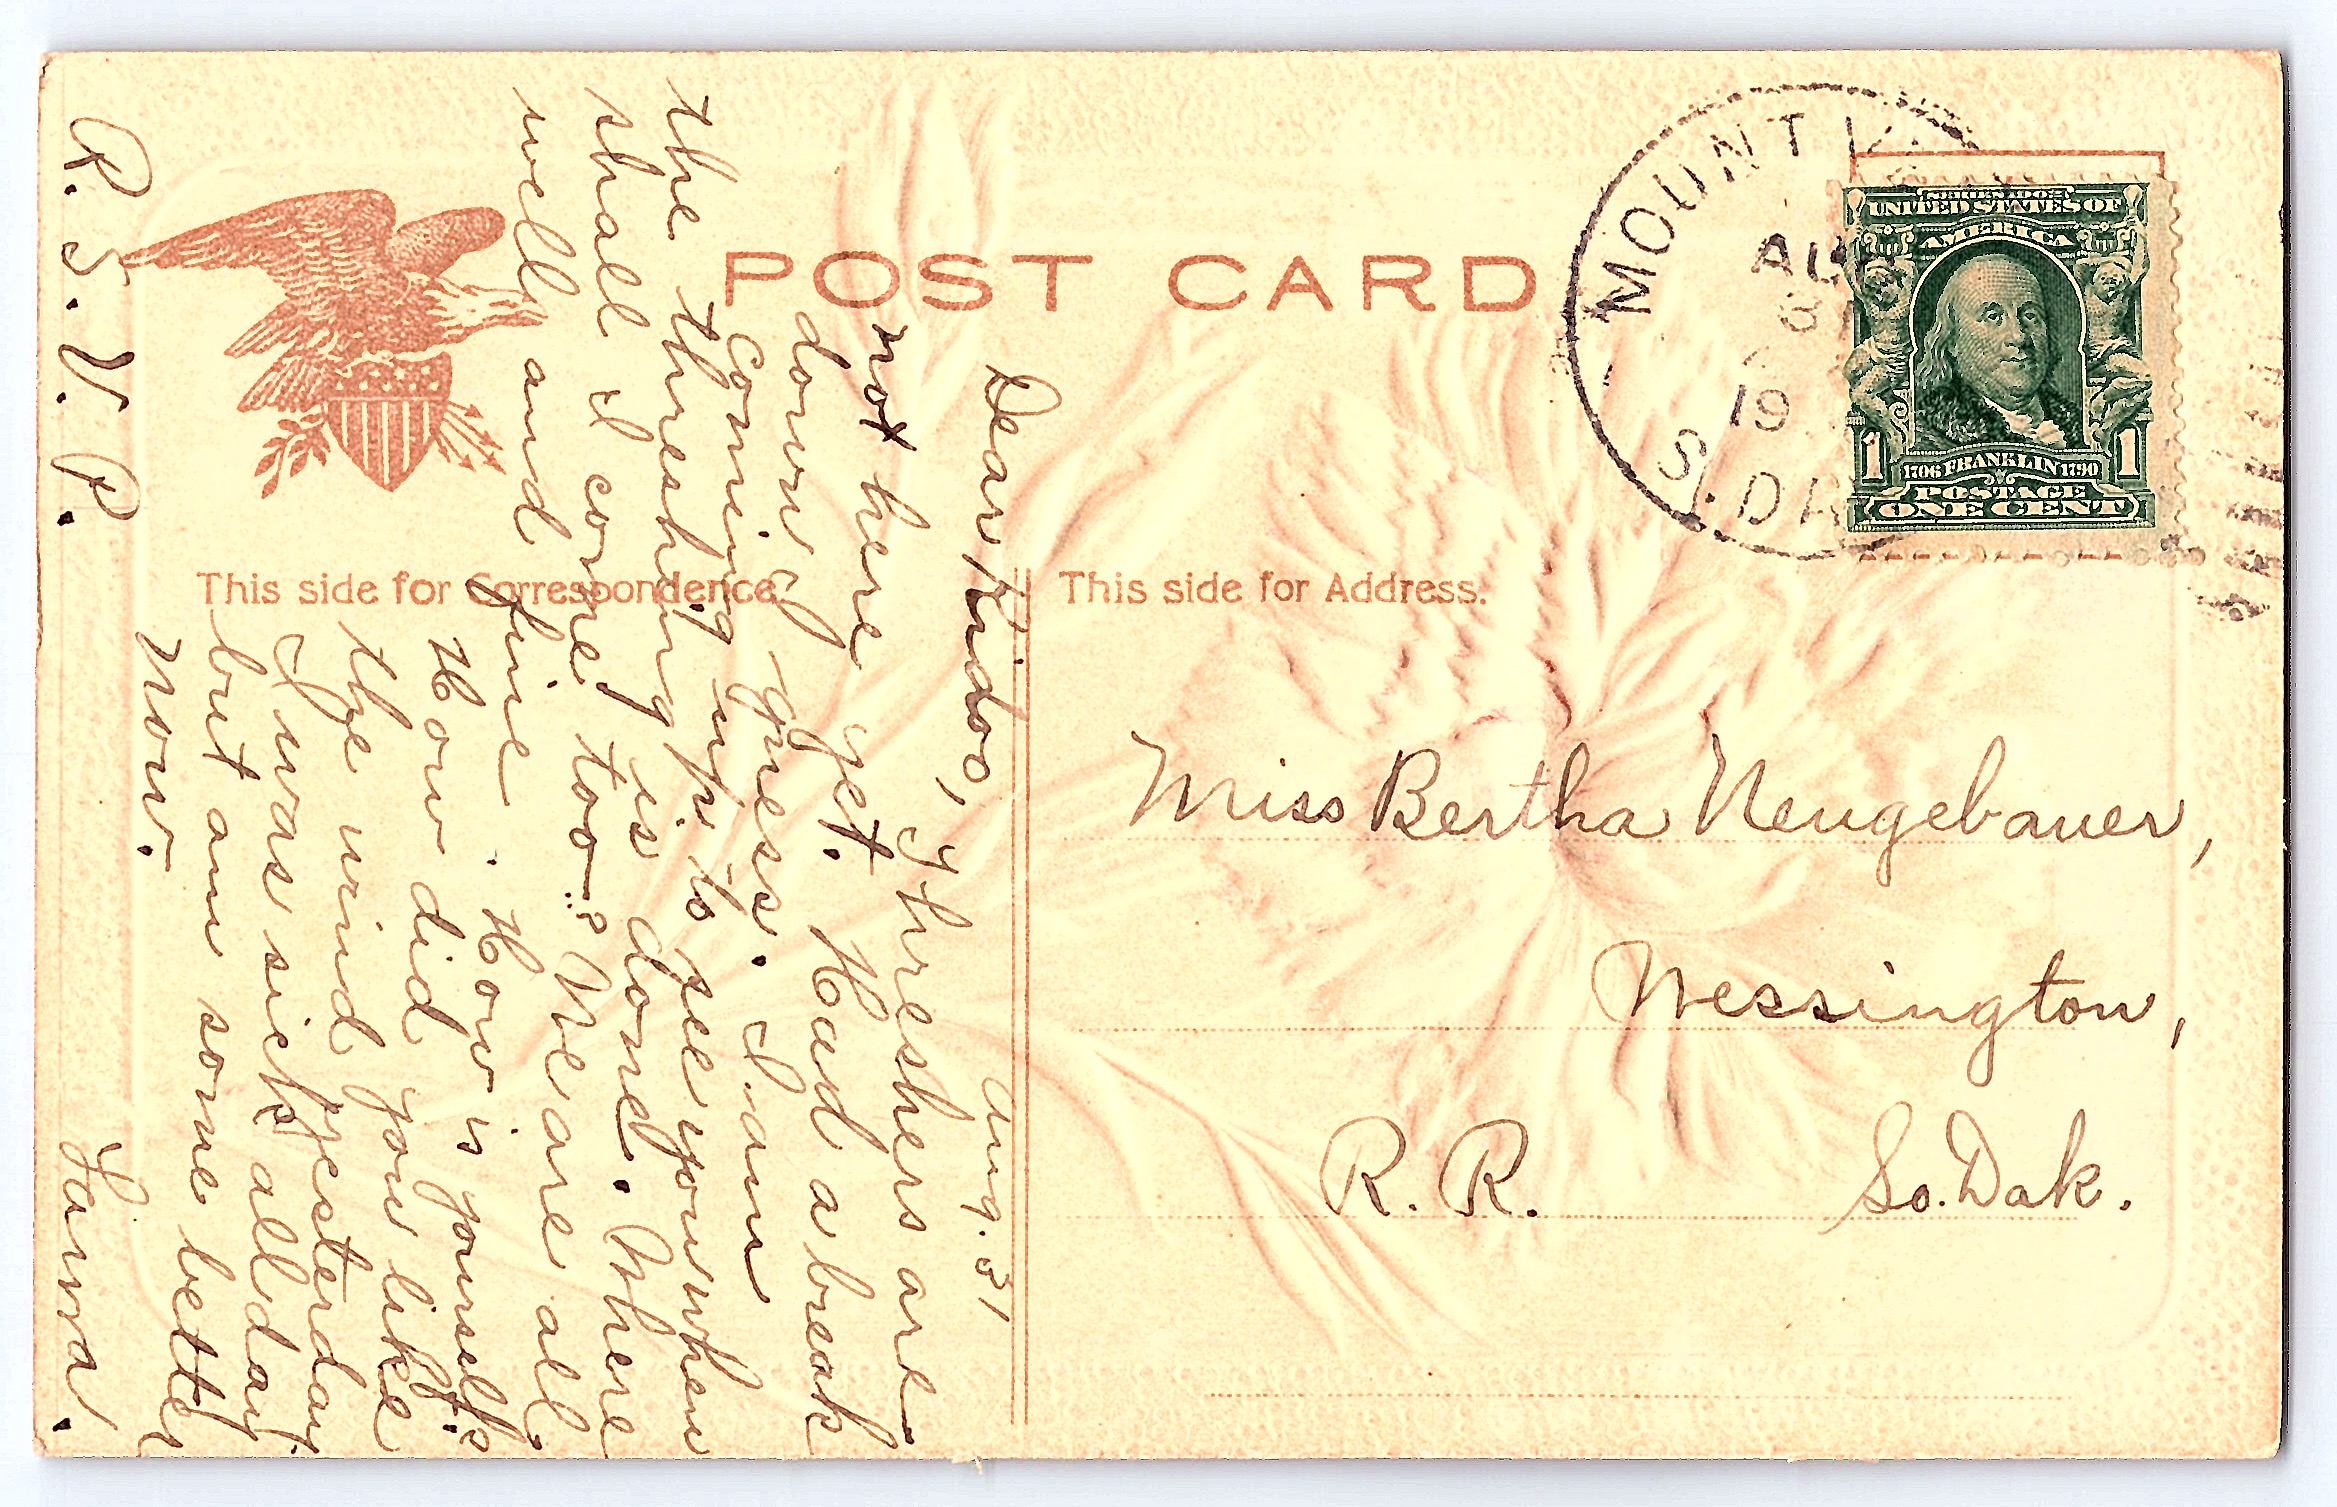 POST CARD
This side for Correspondence.
This side for Address.
MOUNT V
AU
3
19
S. DA
SERIES 1902
UNITED STATES OF
AMERICA
1706 FRANKLIN 1790
1 1
POSTAGE
ONE CENT
Aug. 31
Dear Kidoo,
Threshers are
not here yet. Had a break
down I guess. I am
coming up to see you when
the threshing is done. Where
shall I come too? We are all
well and fine. How is yourself?
How did you like
the wind yesterday
I was sick all day
but am some better
now.
R. S. V. P.
Laura.
Miss Bertha Neugebauer,
Wessington,
R. R. So. Dak.